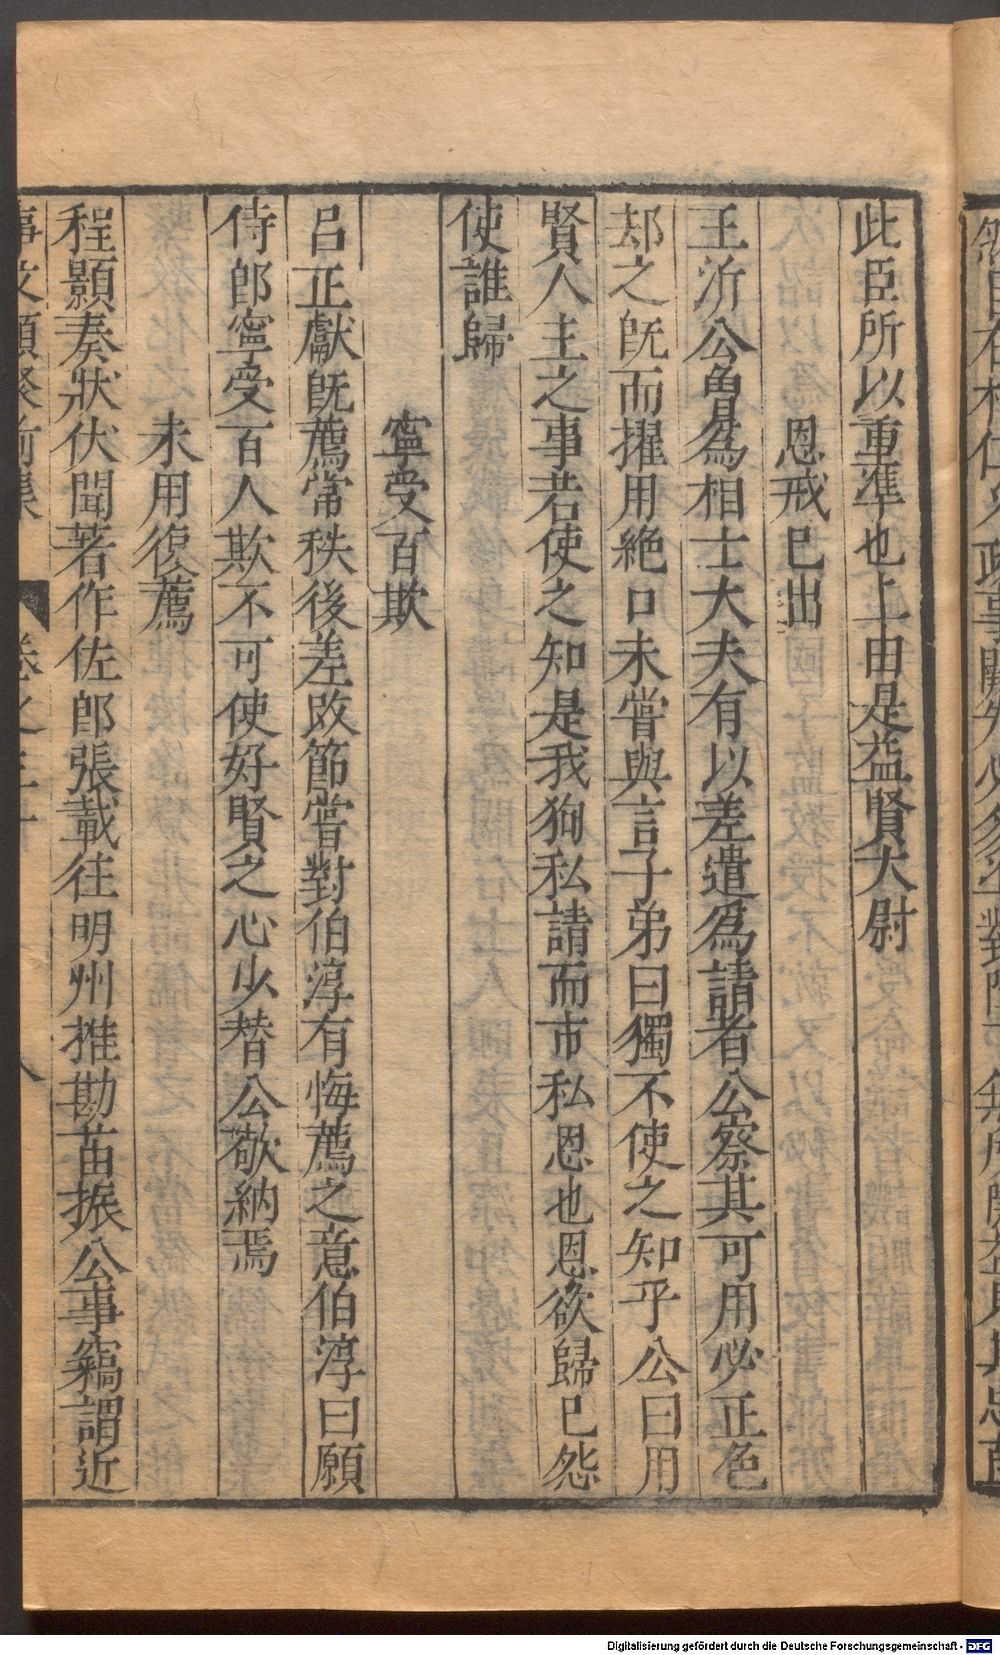 此臣所以重準也上由是益賢大尉
恩戒已出
王沂公曾爲相士大夫有以差遣爲請者公察其可用必正色
却之旣而擢用絶口未嘗與言子弟曰獨不使之知乎公曰用
賢人主之事若使之知是我狥私請而市私恩也恩欲歸已怨
使誰歸
寧受百欺
呂正獻旣薦常秩後差改節嘗對伯淳有悔薦之意伯淳曰願
侍郎寧受百人欺不可使好賢之心少替公敬納焉
未用復薦
程顥奏狀伏聞著作佐郎張載往明州推勘苗振公事竊謂近
事文類聚前集 卷之三十 八
Digitalisierung gefördert durch die Deutsche Forschungsgemeinschaft - DFG